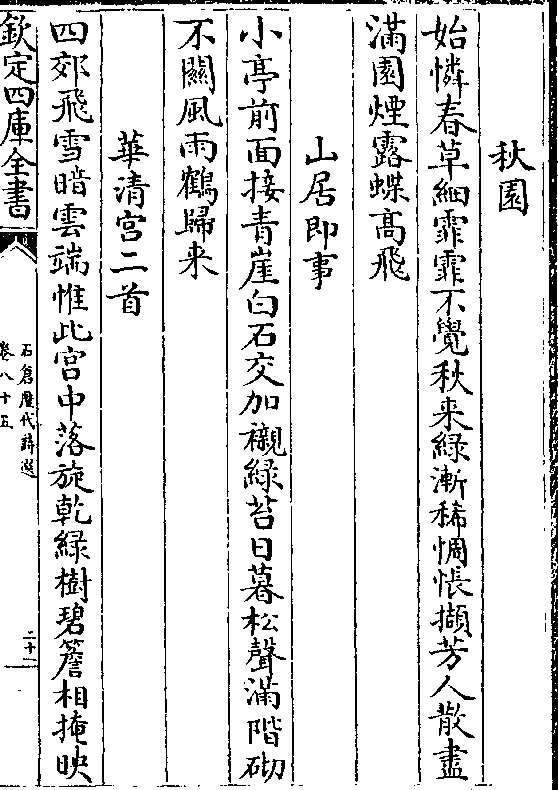 秋園
始憐春草細霏霏不覺秋来綠漸稀惆悵擷芳人散盡
滿園煙露蝶高飛
山居即事
小亭前面接青崖白石交加襯綠苔日暮松聲滿階砌
不關風雨鶴歸来
華清宫二首
四郊飛雪暗雲端惟此宫中落旋乾綠樹碧簷相掩映
欽定四庫全書
石倉歷代詩選
卷八十五
二十一